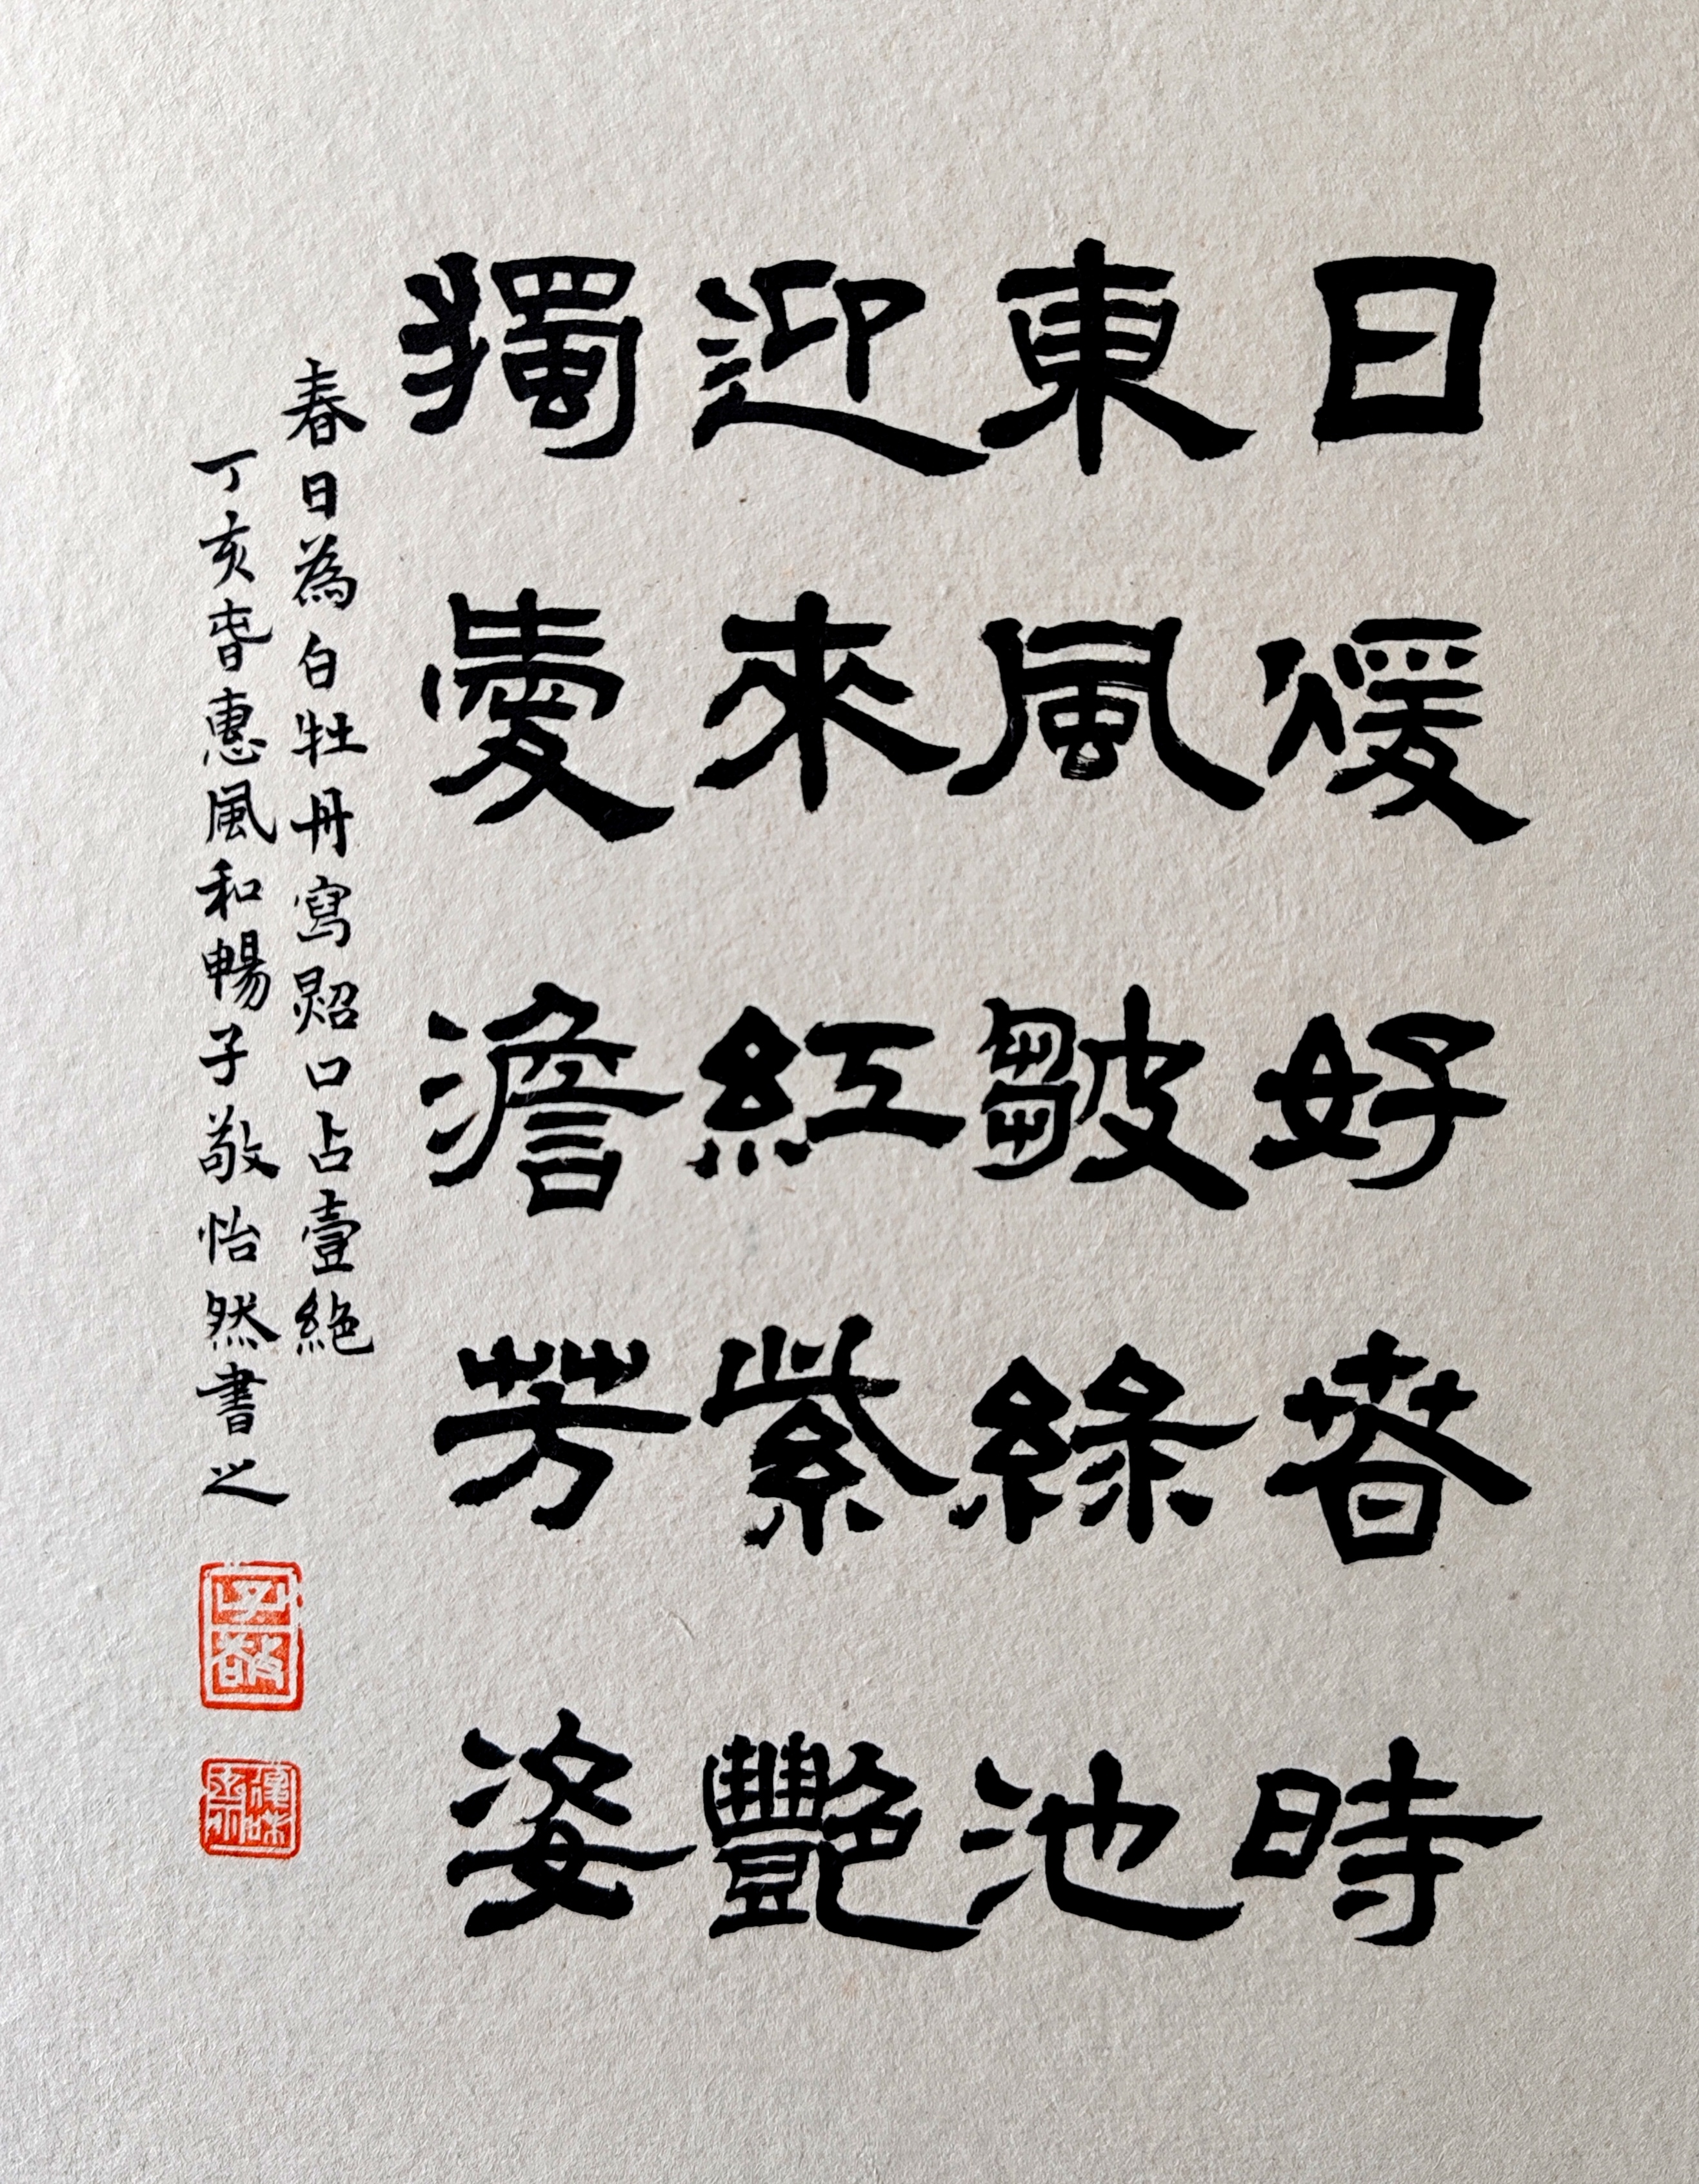 日煖好春時
東風皺綠池
迎來紅紫艷
獨愛澹芳姿
春日為白牡丹寫照口占壹絕
丁亥春惠風和暢子敬怡然書之